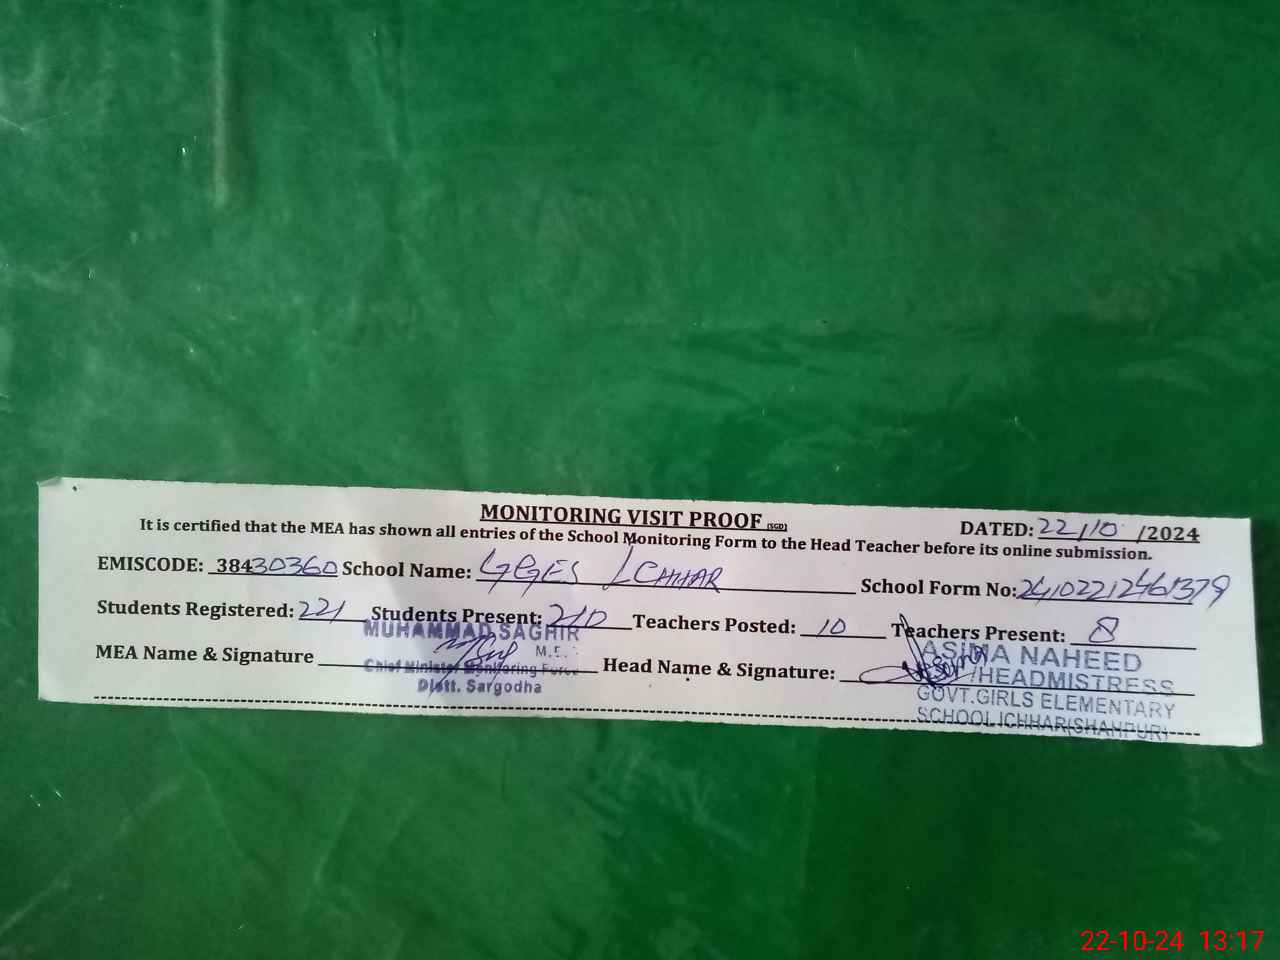 MONITORING VISIT PROOF (SGD)
DATED: 22/10 /2024
It is certified that the MEA has shown all entries of the School Monitoring Form to the Head Teacher before its online submission.
EMISCODE: 38430360 School Name: GGES ICHHAR School Form No: 24102212461379
Students Registered: 221 Students Present: 210 Teachers Posted: 10 Teachers Present: 8
MEA Name & Signature Head Name & Signature:
MUHAMMAD SAGHIR
M.E.
Chief Minister Monitoring Force
Distt. Sargodha
ASIMA NAHEED
/HEADMISTRESS
GOVT.GIRLS ELEMENTARY
SCHOOL ICHHAR(SHAHPUR)
22-10-24 13:17